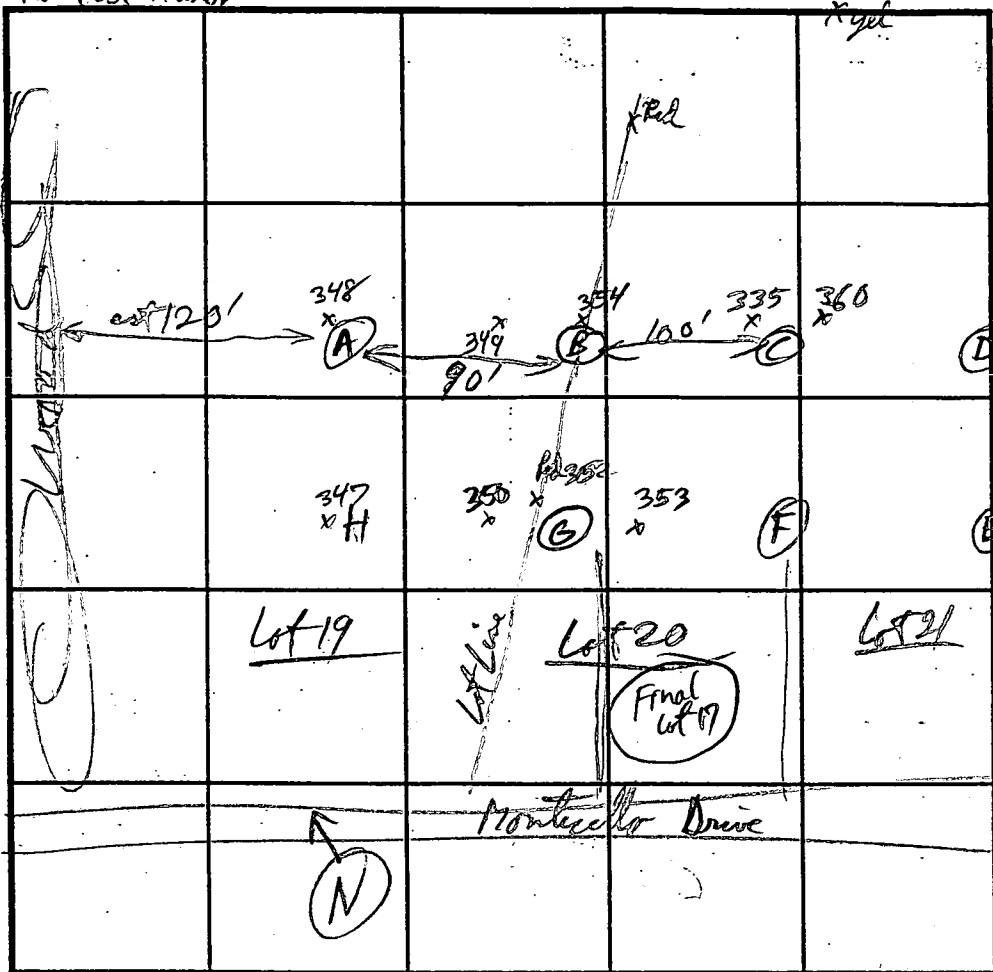 x yel
x Red
est 120'
348
x
A
349
x
90'
354
x
B
100'
335
x
C
360
x
D
347
x H
350
x
x
G
353
x
F
E
Lot 19
Lot Line
Lot 20
Final
Lot 17
Lot 21
Monticello Drive
N